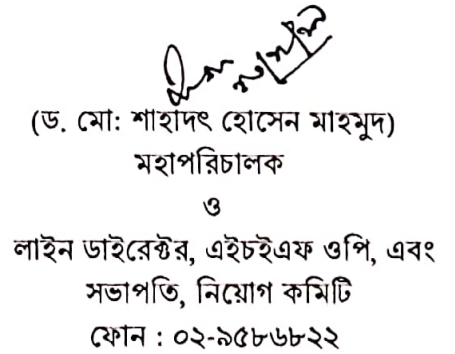 (ড. মো: শাহাদৎ হোসেন মাহমুদ)
মহাপরিচালক
ও
লাইন ডাইরেক্টর, এইচইএফ ওপি, এবং
সভাপতি, নিয়োগ কমিটি
ফোন : ০২-৯৫৮৬৮২২